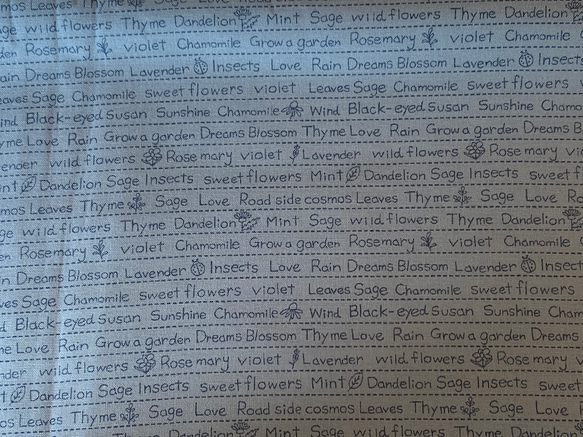 mos Leaves Thyme Sage Love Road side cosmos Leaves
wild flowers Thyme Dandelion Mint Sage wild flowers Thyme Dandelion
Rosemary violet Chamomile Grow a garden Rosemary violet Chamomile
Dreams Blossom Lavender Insects Love Rain Dreams Blossom Lavender Insects
Sage Chamomile sweet flowers violet Leaves Sage Chamomile sweet flowers
Black-eyed Susan Sunshine Chamomile Wind Black-eyed Susan Sunshine Chamo
me Love Rain Grow a garden Dreams Blossom Thyme Love Rain Grow a garden Dreams B
ender wild flowers Rosemary violet Lavender wild flowers Rosemary vio
nt Dandelion Sage Insects sweet flowers Mint Dandelion Sage Insects sweet f
mos Leaves Thyme Sage Love Road side cosmos Leaves Thyme Sage Love Ro
ge wild flowers Thyme Dandelion Mint Sage wild flowers Thyme Dandelion
en Rosemary violet Chamomile Grow a garden Rosemary violet Chamomile
n Dreams Blossom Lavender Insects Love Rain Dreams Blossom Lavender Insect
ves Sage Chamomile sweet flowers violet Leaves Sage Chamomile sweet flowers
d Black-eyed Susan Sunshine Chamomile Wind Black-eyed Susan Sunshine Cham
me Love Rain Grow a garden Dreams Blossom Thyme Love Rain Grow a garden Dreams
nder wild flowers Rosemary violet Lavender wild flowers Rosemary
t Dandelion Sage Insects sweet flowers Mint Dandelion Sage Insects sweet
os Leaves Thyme Sage Love Road side cosmos Leaves Thyme Sage Love
Thyme Dandelion Mint Sage wild flowers Thyme Dandelion